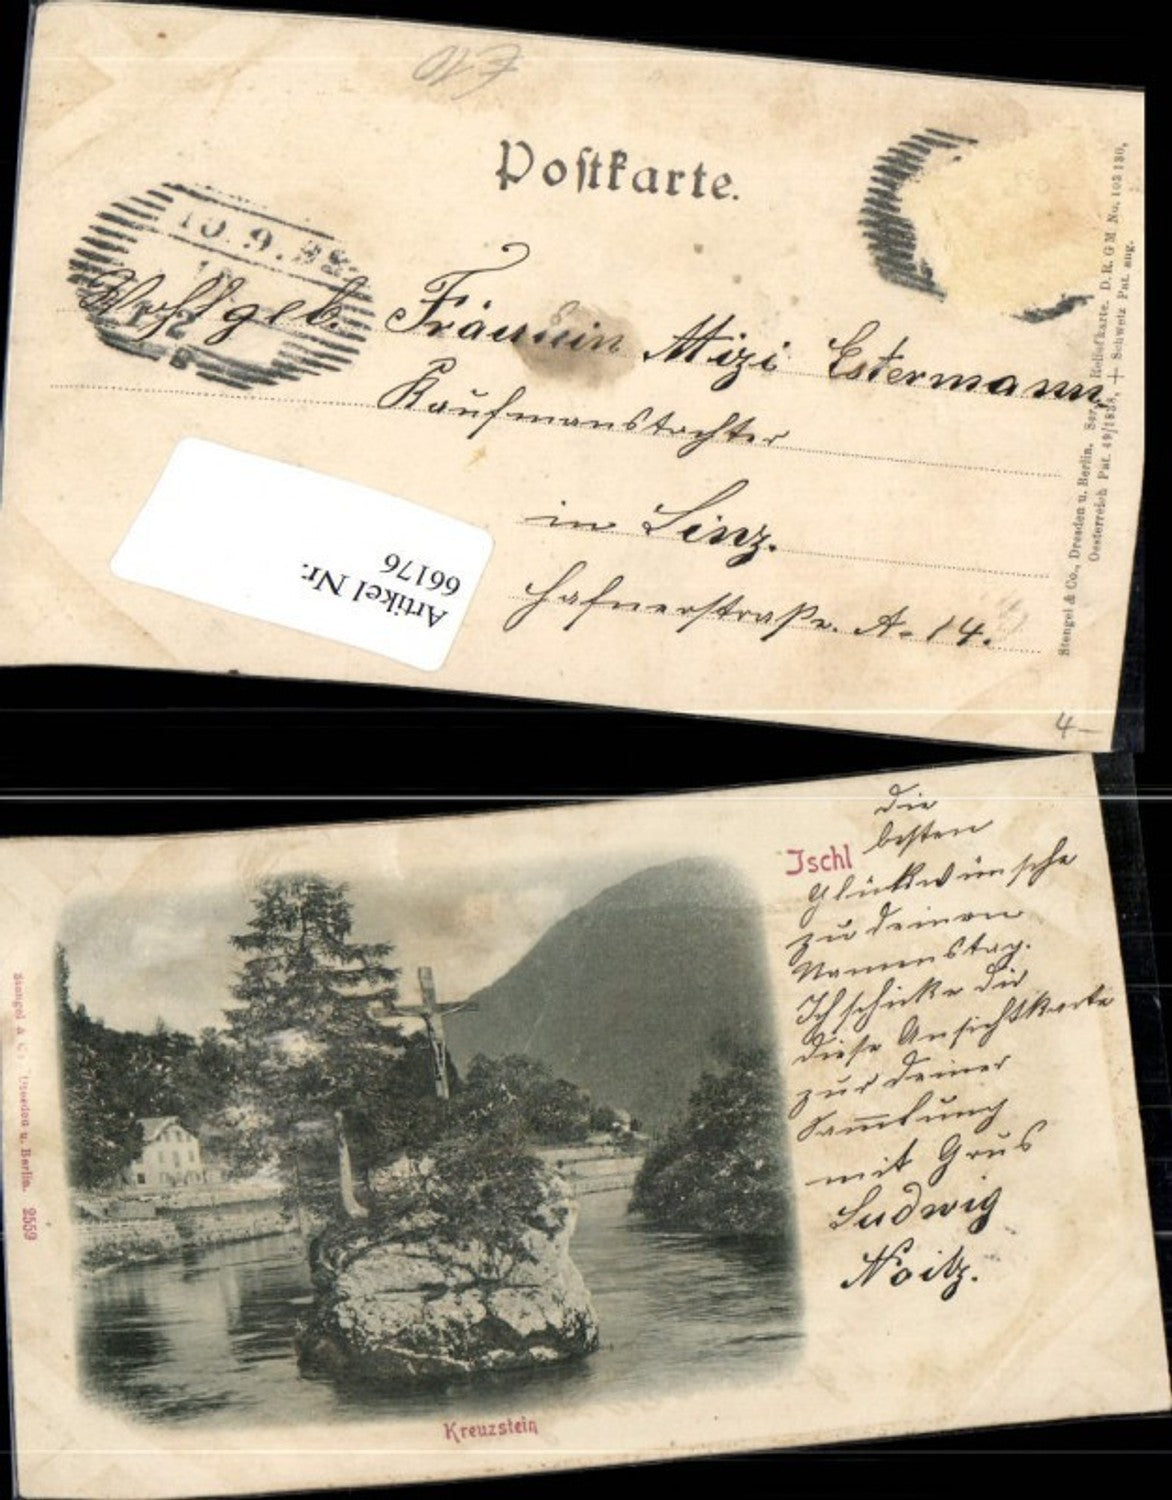 Postkarte.
10.9.
Wohlgeb. Fräulein Mizi Estermann,
Kaufmanstochter
in Linz.
Hafnerstraße. A-14.
Artikel Nr.
66176
Stengel & Co., Dresden u. Berlin. Ser. Reliefkarte. D. R. G M No. 103 130,
Oesterreich Pat. 49/1838, + Schweiz Pat. ang.
4-
Die
besten
Ischl
Glückwünsche
zu deinen
Namenstag.
Ich schicke dir
diese Ansichtskarte
zur deiner
Sammlung
mit Grus
Ludwig
Noitz.
Stengel & Co., Dresden u. Berlin. 2559
Kreuzstein